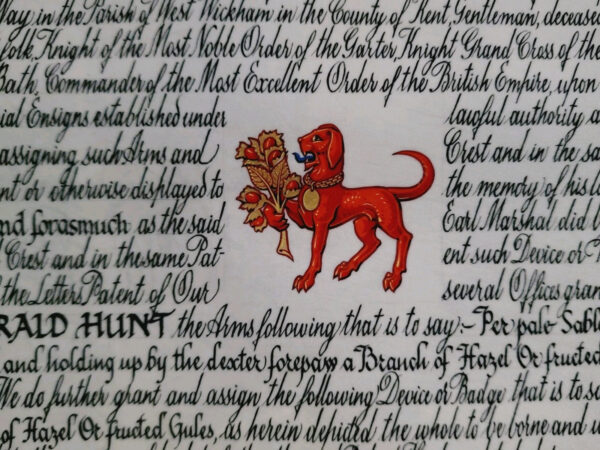 Way, in the Parish of West Wickham in the County of Kent, Gentleman, deceased
folk, Knight of the Most Noble Order of the Garter, Knight Grand Cross of the
Bath, Commander of the Most Excellent Order of the British Empire, upon
ial Ensigns established under lawful authority a
assigning such Arms and Crest and in the sa
nt or otherwise displayed to the memory of his l
and forasmuch as the said Earl Marshal did b
d Crest and in the same Pat- ent such Device or
the Letters Patent of Our several Offices gran
RALD HUNT the Arms following that is to say:- Per pale Sable
and holding up by the dexter forepaw a Branch of Hazel Or fructed
We do further grant and assign the following Device or Badge that is to sa
of Hazel Or fructed Gules, as herein depicted the whole to be borne and u